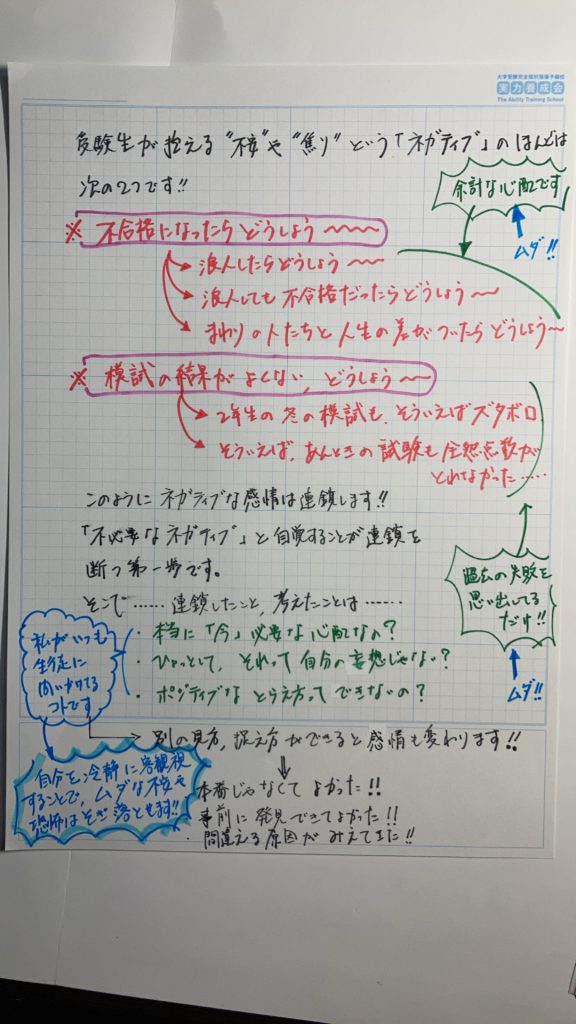 大学受験完全個別指導予備校
実力養成会
The Ability Training School
受験生が抱える"不安"や"焦り"という「ネガティブ」のほとんどは
次の2つです!!
余計な心配です
ムダ!!
※ 不合格になったらどうしよう〜〜〜〜
浪人したらどうしよう〜〜〜
浪人しても不合格だったらどうしよう〜
まわりの人たちと人生の差がついたらどうしよう〜
※ 模試の結果がよくない, どうしよう〜〜
2年生の冬の模試も, そういえばズタボロ
そういえば, あんときの試験も全然点数が
とれなかった……
このようにネガティブな感情は連鎖します!!
「不必要なネガティブ」と自覚することが連鎖を
断つ第一歩です。
過去の失敗を
思い出してる
だけ!!
ムダ!!
そこで……連鎖したこと, 考えたことは……
私がいつも
生徒に
問いかけてる
コトです
・本当に「今」必要な心配なの?
・ひょっとして, それって自分の妄想じゃない?
・ポジティブなとらえ方ってできないの?
別の見方, 捉え方ができると感情も変わります!!
自分を冷静に客観視
することで, ムダな不安や
恐怖はそぎ落とせます!!
本番じゃなくてよかった!!
事前に発見できてよかった!!
・間違える原因がみえてきた!!